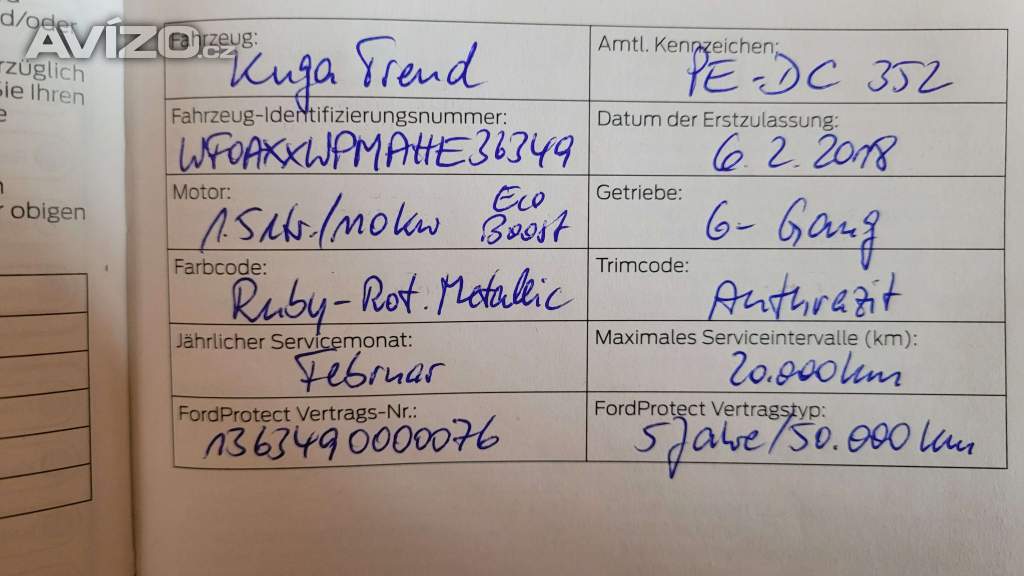 d/oder
rzüglich
ie Ihren
e
r obigen
AVÍZO.cz
Fahrzeug:
Kuga Trend
Amtl. Kennzeichen:
PE-DC 352
Fahrzeug-Identifizierungsnummer:
WF0AXXWPMAHE36349
Datum der Erstzulassung:
6.2.2018
Motor:
1.5 ltr./110 kw Eco
Boost
Getriebe:
6-Gang
Farbcode:
Ruby-Rot. Metallic
Trimcode:
Anthrazit
Jährlicher Servicemonat:
Februar
Maximales Serviceintervalle (km):
20.000 km
FordProtect Vertrags-Nr.:
1363490000076
FordProtect Vertragstyp:
5 Jahre/50.000 km